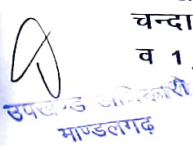 चन्दा
व 1
उपखण्ड अधिकारी
माण्डलगढ़